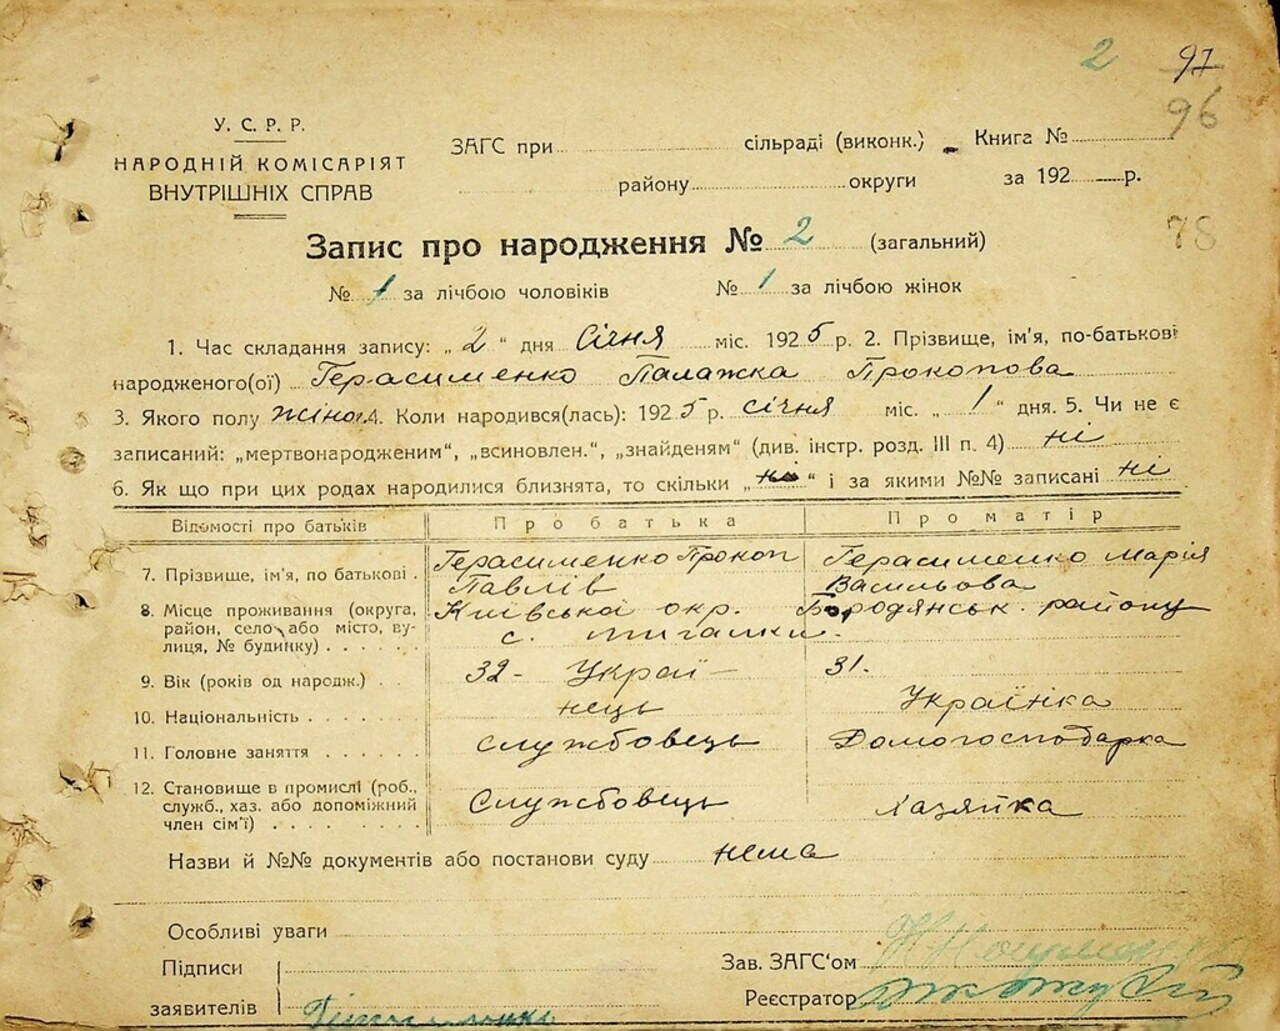 2 97
96
У. С. Р. Р.
НАРОДНІЙ КОМІСАРІЯТ
ВНУТРІШНІХ СПРАВ
ЗАГС при сільраді (виконк.) Книга №
району округи за 192 р.
78
Запис про народження № 2 (загальний)
№ 1 за лічбою чоловіків № 1 за лічбою жінок
1. Час складання запису: „ 2 “ дня Січня міс. 1925 р. 2. Прізвище, ім'я, по-батькові
народженого(ої) Герасименко Палажка Прокопова
3. Якого полу жіно. 4. Коли народився(лась): 1925 р. січня міс. „ 1 “ дня. 5. Чи не є
записаний: „мертвонародженим“, „всиновлен.“, „знайденям“ (див. інстр. розд. III п. 4) ні
6. Як що при цих родах народилися близнята, то скільки „ ні “ і за якими №№ записані ні
Відомості про батьків Про батька Про матір
7. Прізвище, ім'я, по батькові . Герасименко Прокоп Герасименко Марія
Павлів Васильова
8. Місце проживання (округа, Київська окр. Бородянськ. району
район, село або місто, ву- с. Мигалки.
лиця, № будинку) . . . . .
9. Вік (років од народж.) . . 32 - Украї- 31.
10. Національність . . . . . . нець Українка
11. Головне заняття . . . . . Службовець Домогосподарка
12. Становище в промислі (роб.,
служб., хаз. або допоміжний Службовець Хазяйка
член сім'ї) . . . . . . . .
Назви й №№ документів або постанови суду нема
Особливі уваги
Підписи Зав. ЗАГС'ом
заявителів Реєстратор